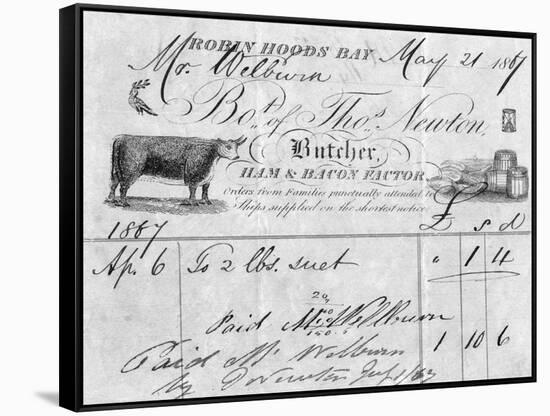 ROBIN HOODS BAY May 21 1867
Mr. Welburn
Bot. of Thos. Newton,
Butcher,
HAM & BACON FACTOR
Orders from Families punctually attended to
Ships supplied on the shortest notice
£ s d
1867
Ap. 6 To 2 lbs. suet " 1 4
Paid Mr Wellburn
1 10 6
Paid Mr. Welburn
by